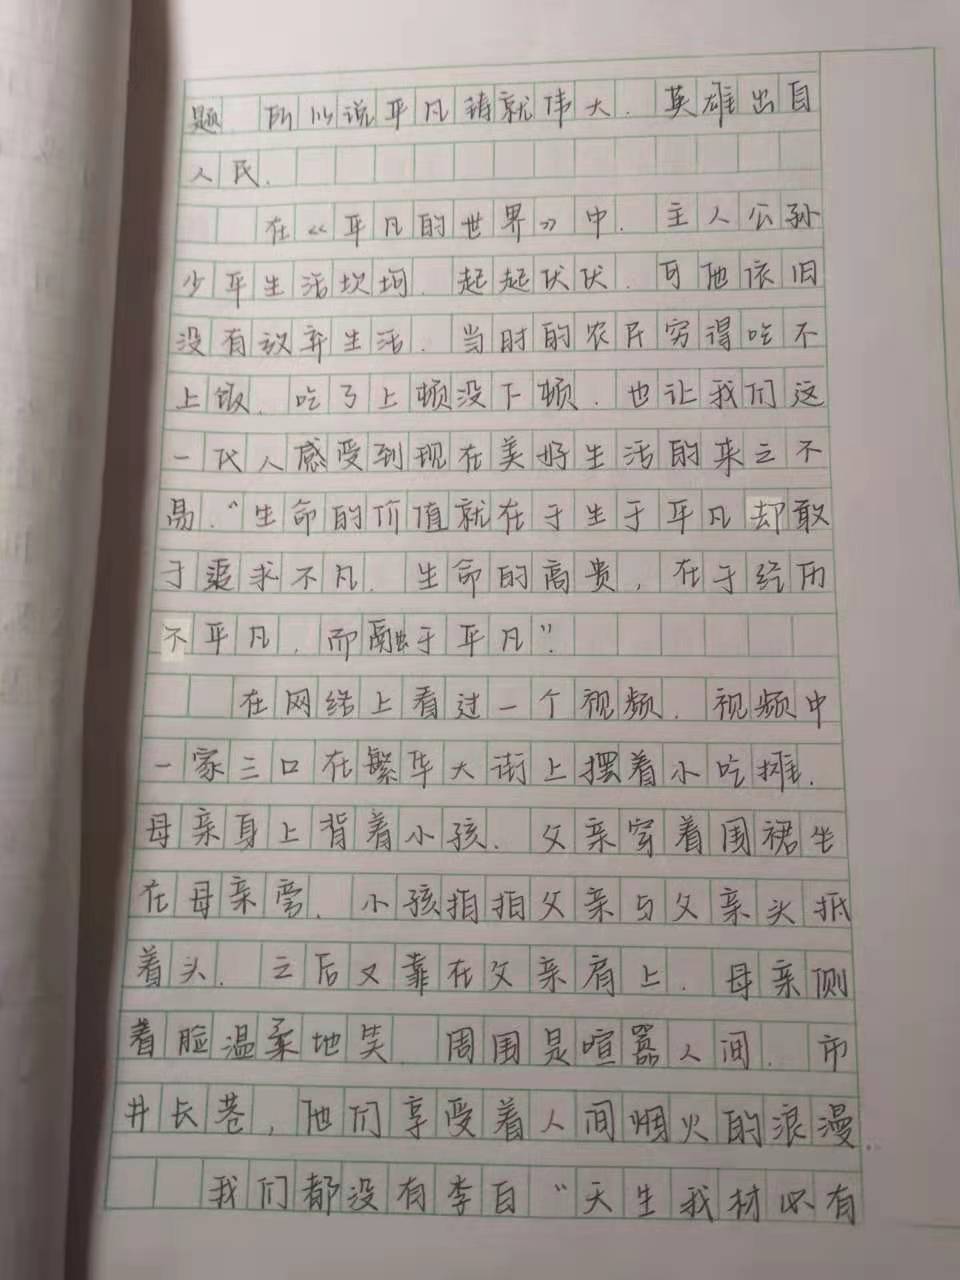 题.所以说平凡铸就伟大.英雄出自
人民.
在《平凡的世界》中.主人公孙
少平生活坎坷.起起伏伏.可他依旧
没有放弃生活.当时的农民穷得吃不
上饭.吃了上顿没下顿.也让我们这
一代人感受到现在美好生活的来之不
易.“生命的价值就在于生于平凡却敢
于追求不凡.生命的高贵,在于经历
不平凡,而融于平凡”.
在网络上看过一个视频.视频中
一家三口在繁华大街上摆着小吃摊.
母亲身上背着小孩.父亲穿着围裙坐
在母亲旁.小孩拍拍父亲与父亲头抵
着头.之后又靠在父亲肩上.母亲侧
着脸温柔地笑.周围是喧嚣人间.市
井长巷,他们享受着人间烟火的浪漫.
我们都没有李白“天生我材必有